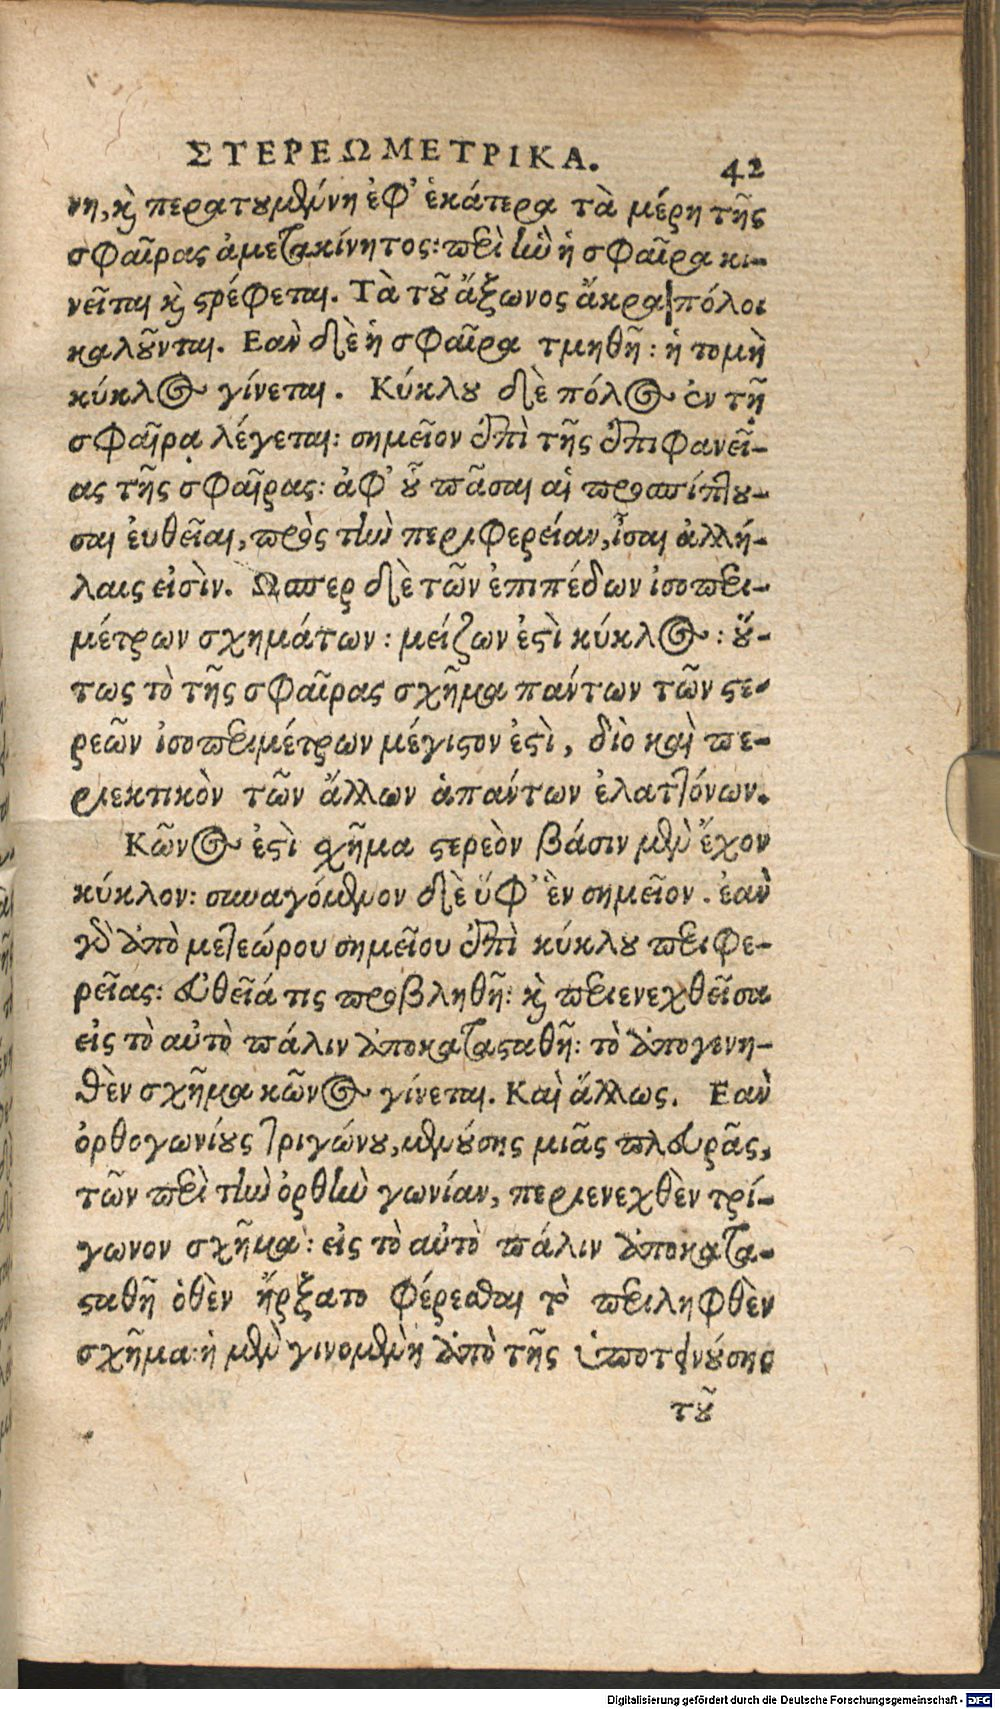 ΣΤΕΡΕΩΜΕΤΡΙΚΑ. 42
νη, καὶ περατουμένη ἐφ' ἑκάτερα τὰ μέρη τῆς
σφαῖρας ἀμετακίνητος: περὶ ἣν ἡ σφαῖρα κι-
νεῖται καὶ στρέφεται. Τὰ τοῦ ἄξωνος ἄκρα πόλοι
καλοῦνται. Εαν δὲ ἡ σφαῖρα τμηθῆ: ἡ τομὴ
κύκλος γίνεται. Κύκλου δὲ πόλος ἐν τῇ
σφαῖρᾳ λέγεται: σημεῖον ἐπὶ τῆς ἐπιφανεί-
ας τῆς σφαῖρας: ἀφ' οὗ πᾶσαι αἱ προσπίπτου-
σαι ἐυθεῖαι, πρὸς τὴν περιφερείαν, ἶσαι ἀλλή-
λαις εἰσὶν. Ωσπερ δὲ τῶν ἐπιπέδων ἰσοπερι-
μέτρων σχημάτων: μείζων ἐστὶ κύκλος: οὕ-
τως τὸ τῆς σφαῖρας σχῆμα πάντων τῶν στε-
ρεῶν ἰσοπεριμέτρων μέγιστον ἐστὶ, διὸ καὶ πε-
ριεκτικὸν τῶν ἄλλων ἁπάντων ἐλαττόνων.
Κῶνος ἐστὶ σχῆμα στερεὸν βάσιν μὲν ἔχον
κύκλον: συναγόμενον δὲ ὕφ' ἓν σημεῖον. ἐὰν
γὰρ ἀπὸ μετεώρου σημείου ἐπὶ κύκλου περιφε-
ρεῖας: εὐθεῖά τις προβληθῆ: καὶ περιενεχθεῖσα
εἰς τὸ αὐτὸ πάλιν ἀποκαταστaθῆ: τὸ ἀπογενη-
θὲν σχῆμα κῶνος γίνεται. Καὶ ἄλλως. Εαν
ὀρθογωνίους τριγώνου, μενούσης μιᾶς πλευρᾶς,
τῶν περὶ τὴν ὀρθὴν γωνίαν, περιενεχθὲν τρί-
γωνον σχῆμα: εἰς τὸ αὐτὸ πάλιν ἀποκατα-
σταθῆ ὁθὲν ἤρξατο φέρεσθαι τὸ περιληφθὲν
σχῆμα: ἡ μὲν γινομένη ἀπὸ τῆς ὑποτεινούσης
τοῦ
Digitalisierung gefördert durch die Deutsche Forschungsgemeinschaft - DFG